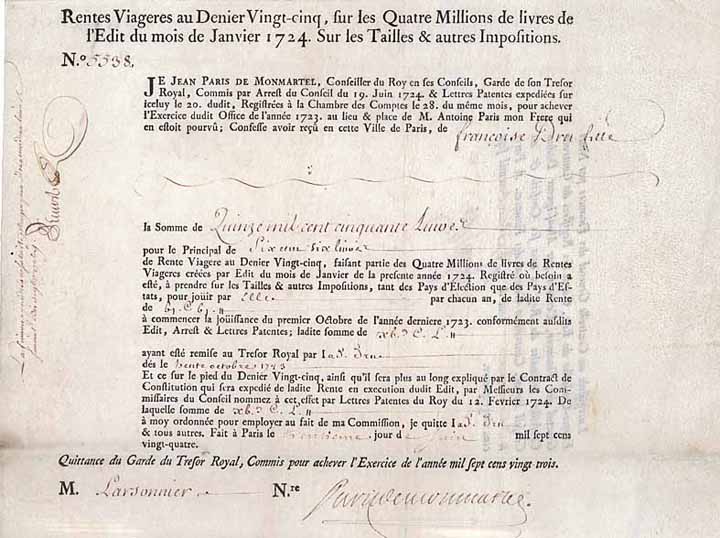 Rentes Viageres au Denier Vingt-cinq, sur les Quatre Millions de livres de
l'Edit du mois de Janvier 1724. Sur les Tailles & autres Impositions.
N.º 5538.
JE JEAN PARIS DE MONMARTEL, Conseiller du Roy en ses Conseils, Garde de son Tresor
Royal, Commis par Arrest du Conseil du 19. Juin 1724. & Lettres Patentes expediées sur
iceluy le 20. dudit, Registrées à la Chambre des Comptes le 28. du même mois, pour achever
l'Exercice dudit Office de l'année 1723. au lieu & place de M. Antoine Paris mon Frere qui
en estoit pourvû; Confesse avoir reçû en cette Ville de Paris, de
françoise
la Somme de Quinze mil cent cinquante Livres
pour le Principal de Six cens six livres
de Rente Viagere au Denier Vingt-cinq, faisant partie des Quatre Millions de livres de Rentes
Viageres créées par Edit du mois de Janvier de la presente année 1724. Registré où besoin a
esté, à prendre sur les Tailles & autres Impositions, tant des Pays d'Election que des Pays d'Es-
tats, pour joüir par elle par chacun an, de ladite Rente
de bj. C bj. ₶
à commencer la joüissance du premier Octobre de l'année derniere 1723. conformément ausdits
Edit, Arrest & Lettres Patentes; ladite somme de xb.ᵐ C. L. ₶
ayant esté remise au Tresor Royal par lad.
dés le trente octobre 1723
Et ce sur le pied du Denier Vingt-cinq, ainsi qu'il sera plus au long expliqué par le Contract de
Constitution qui sera expedié de ladite Rente en execution dudit Edit, par Messieurs les Com-
missaires du Conseil nommez à cet effet par Lettres Patentes du Roy du 12. Fevrier 1724. De
laquelle somme de xb.ᵐ C. L. ₶
à moy ordonnée pour employer au fait de ma Commission, je quitte lad.
& tous autres. Fait à Paris le trentieme jour de Juin mil sept cens
vingt-quatre.
Quittance du Garde du Tresor Royal, Commis pour achever l'Exercice de l'année mil sept cens vingt trois.
M. Larsonnier N.re Paris de monmartel.